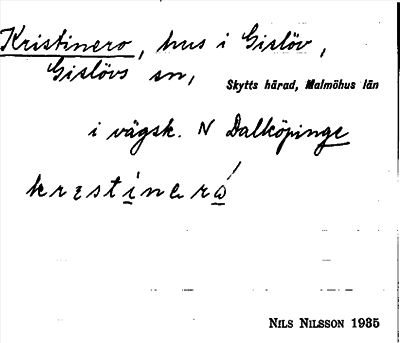 Kristinero, hus i Gislöv,
Gislövs sn,
Skytts härad, Malmöhus län
i vägsk. N Dalköpinge
NILS NILSSON 1935